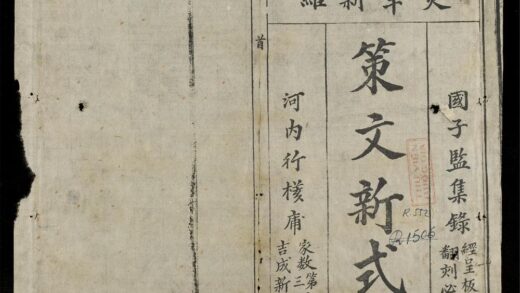 新
國子監集錄
經呈板
翻刻必
策文新式
河内行核庯
家數第三
吉成新
首
R.552
R1506